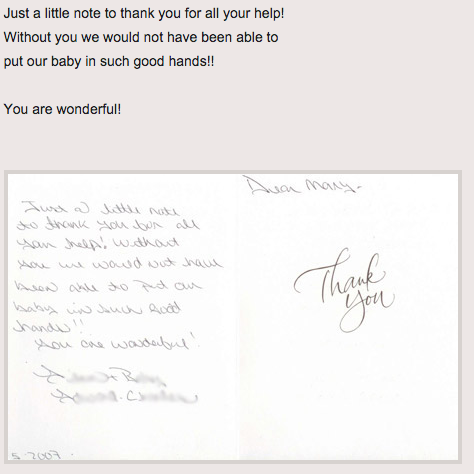 Just a little note to thank you for all your help!
Without you we would not have been able to
put our baby in such good hands!!
You are wonderful!
Dear Mary,
Just a little note
to thank you for all
your help! Without
you we would not have
been able to put our
baby in such good
hands!!
You are wonderful!
Thank
You
5.2007